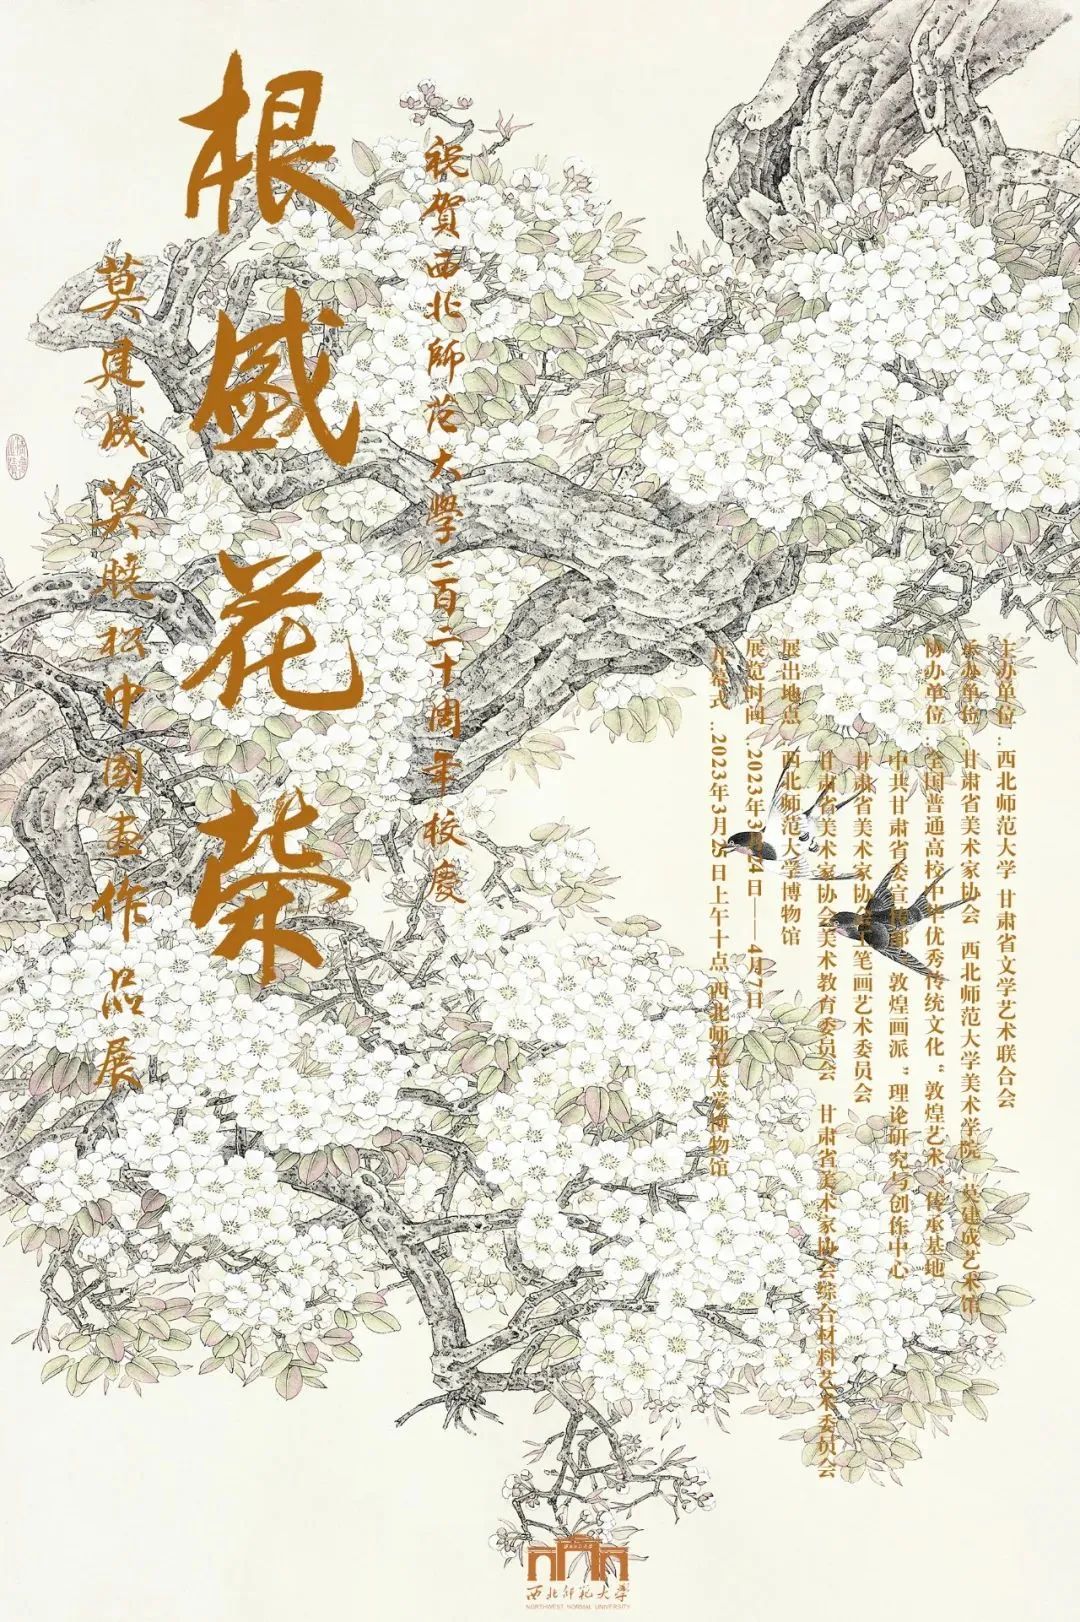 祝賀西北師范大學一百二十周年校慶
根盛花榮
莫建成 莫曉松中國畫作品展
主办单位：西北师范大学 甘肃省文学艺术联合会
承办单位：甘肃省美术家协会 西北师范大学美术学院 莫建成艺术馆
协办单位：全国普通高校中华优秀传统文化“敦煌艺术”传承基地
中共甘肃省委宣传部“敦煌画派”理论研究与创作中心
甘肃省美术家协会工笔画艺术委员会
甘肃省美术家协会美术教育委员会 甘肃省美术家协会综合材料艺术委员会
展出地点：西北师范大学博物馆
展览时间：2023年3月24日——4月7日
开幕式：2023年3月25日上午十点 西北师范大学博物馆
西北师范大学
NORTHWEST NORMAL UNIVERSITY